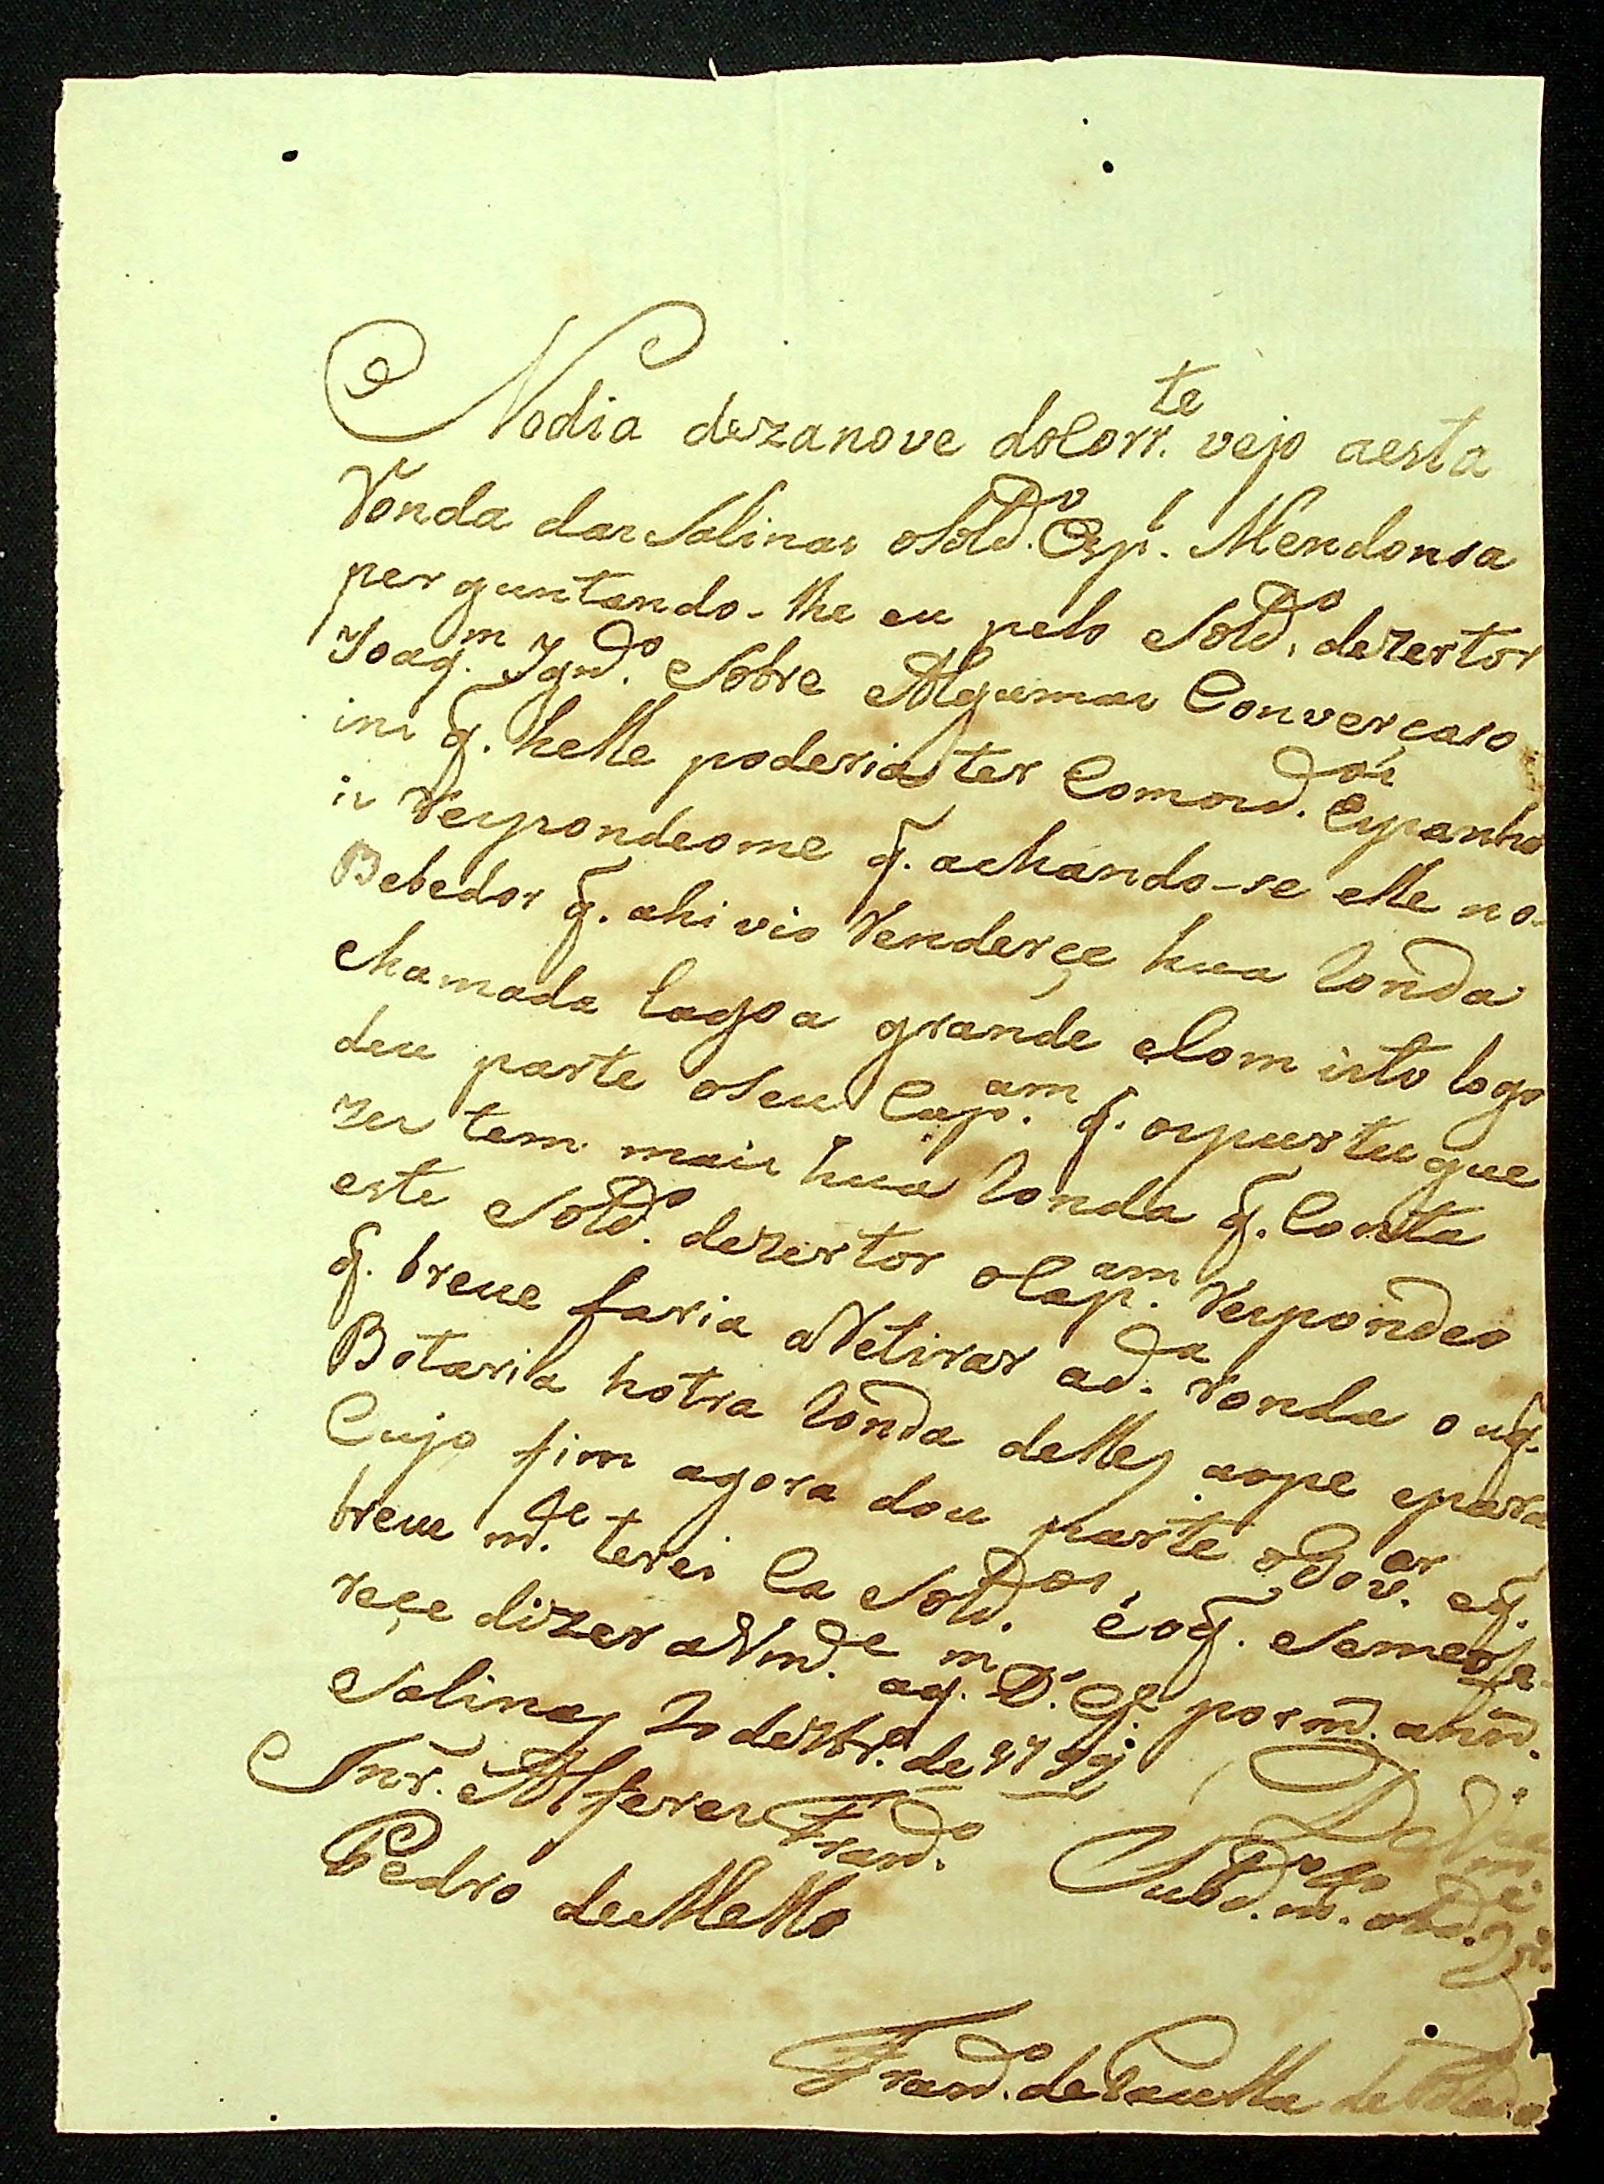 Nodia dezanove doCorr.te vejo aesta
Ronda das Salinas oSold.o Esp.l Mendonsa
perguntando-lhe eu pelo Sold.o dezertor
Joaq.m Ign.o Sobre Algumas Converçaso
ins q. helle poderia ter Comos d.os Espanho
is Respondeome q. achándo-se elle no
Bebedor q. ahi vio Renderçe hua Ronda
chamada lagoa grande eCom isto logo
deu parte oSeu Cap.am q. osPurtugue
zes tem mais hua Ronda q. Conta
este Sold.o dezertor oCap.am Respondeo
q. breve faria aRetirar ad.a ronda ouq.
Botaria hotra Ronda delles aope epara
Cujo fim agora dou parte oGov.or eq.
breve m.te terei la Sold.os, éoq. Semeofe-
reçe dizer aVm.ce aq.m D.s G.e porm. ann.
Salinas 20 de 7br.o de 179
Snr. Alferes Fran.co
Pedro deMello
DeVm.ce
Subd.o m.to obd.
Fran.co de